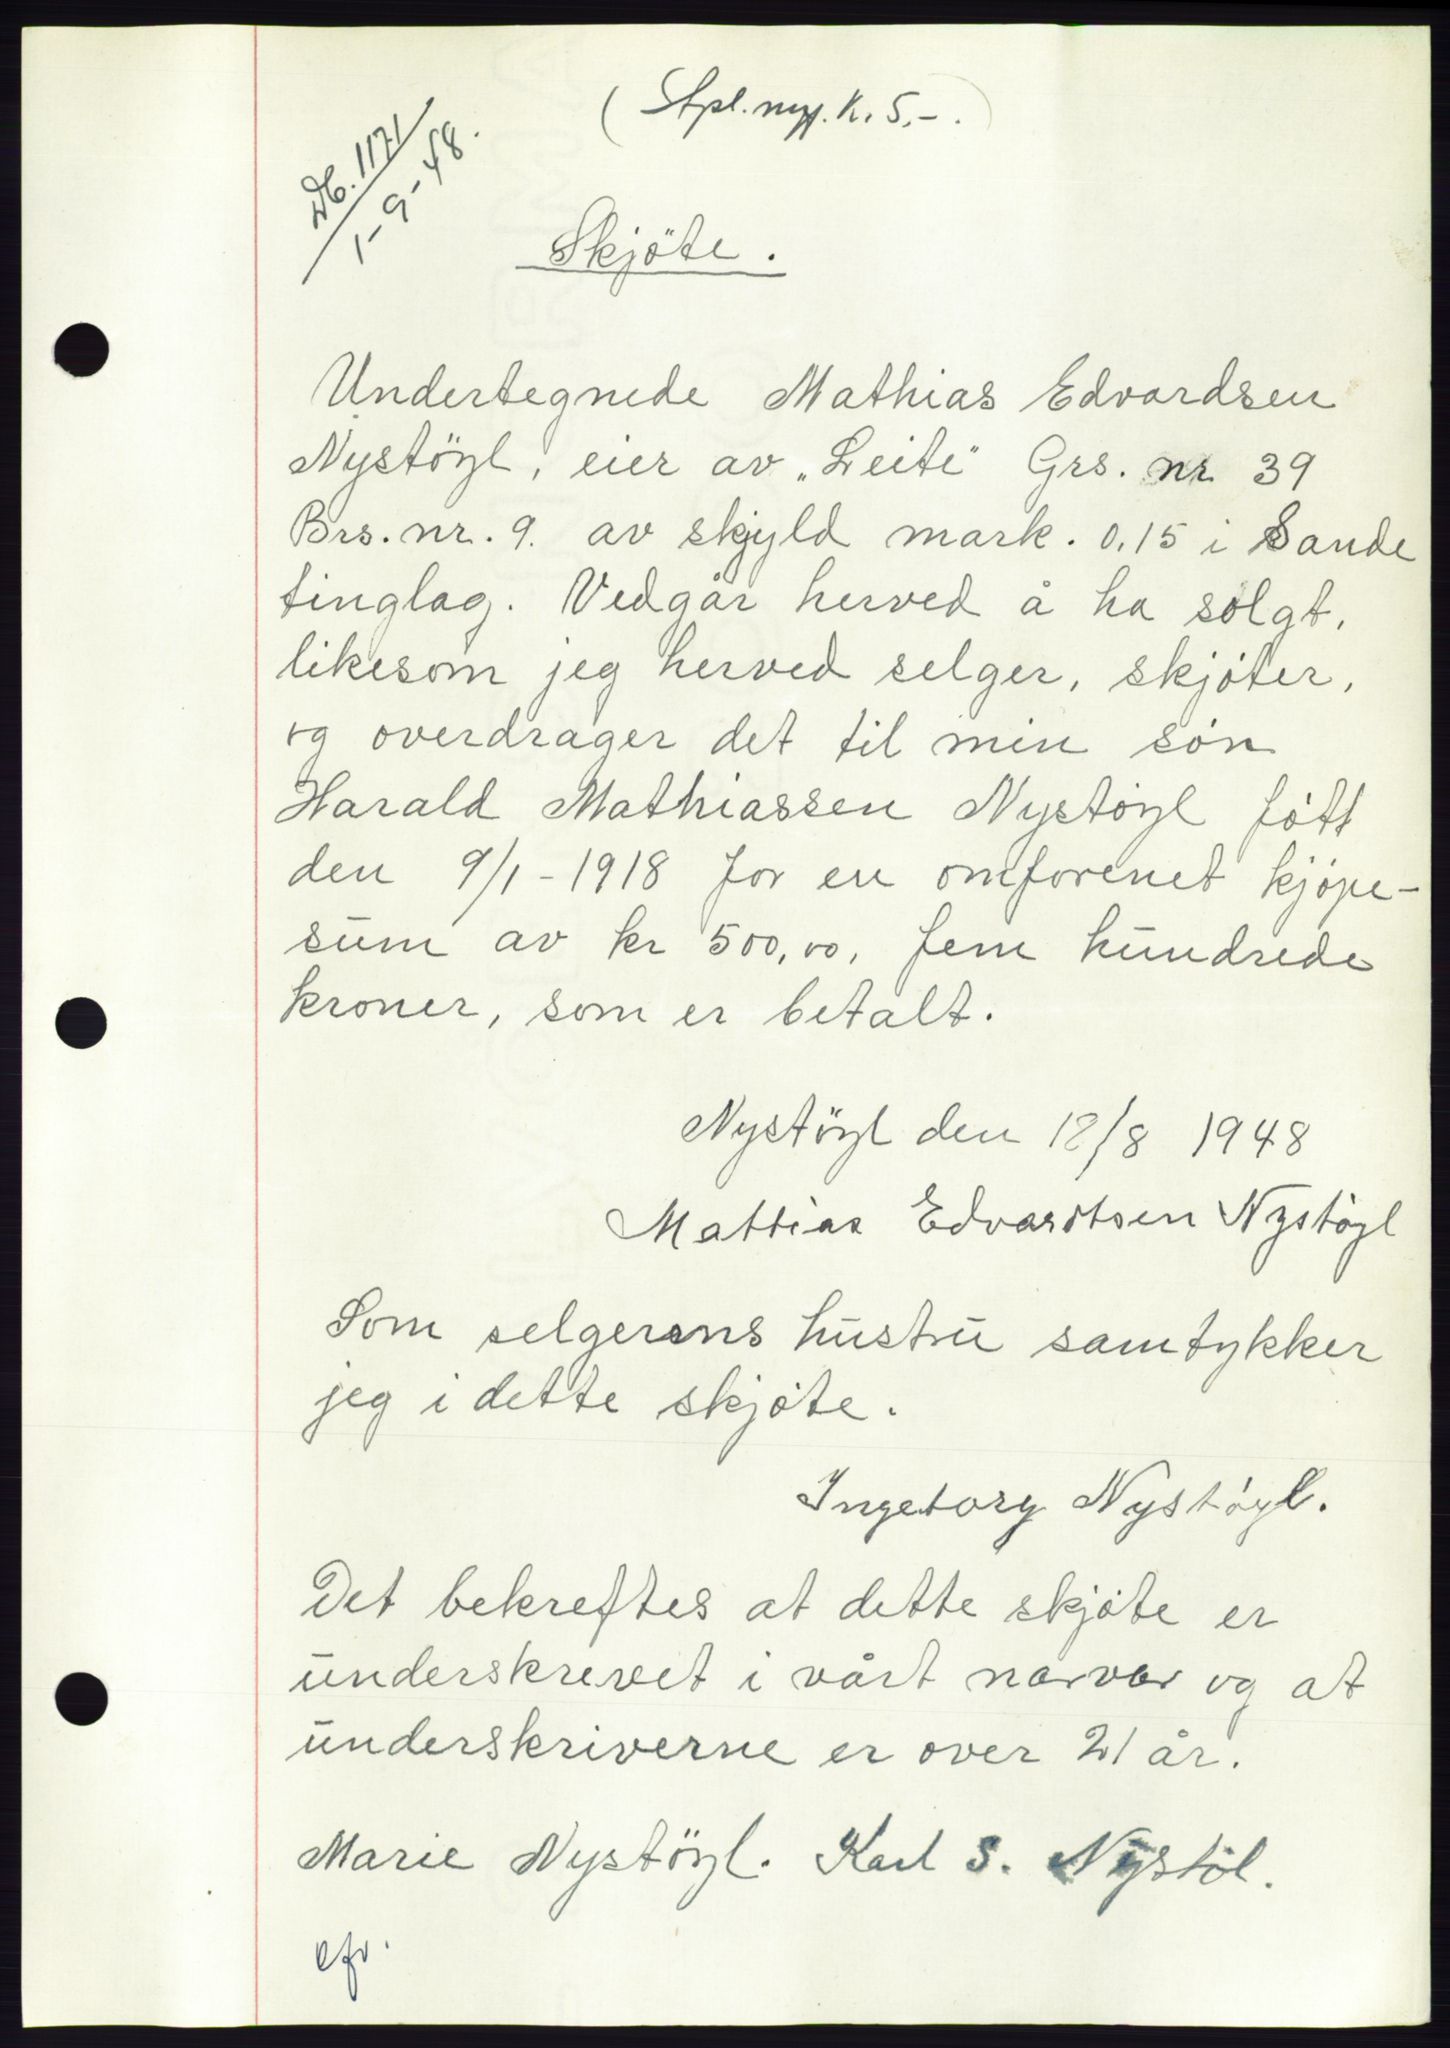 (Stpl. mrk. K. 5,-.)
Db. 1171
1-9-48.
Skjöte.
Undertegnede Mathias Edvardsen
Nystöyl, eier av „Leite" Grs. nr 39
Brs. nr. 9. av skyld mark. 0.15 i Sande
tinglag. Vedgår herved å ha solgt,
likesom jeg herved selger, skjöter,
og overdrager det til min sön
Harald Mathiassen Nystöyl fött
den 9/1-1918 for en omforenet kjöpe-
sum av kr 500,00, fem hundrede
kroner, som er betalt.
Nystöyl den 18/8 1948
Mattias Edvardtsen Nystöyl
Som selgerens hustru samtykker
jeg i dette skjöte.
Ingeborg Nystöyl.
Det bekreftes at dette skjöte er
underskrevet i vårt narvar og at
underskriverne er over 21 år.
Marie Nystöyl. Karl S. Nystöl.